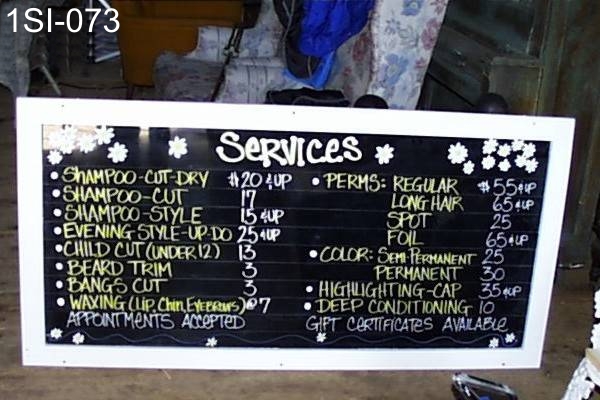 1SI-073
Services
• SHAMPOO-CUT-DRY $20 & UP
• SHAMPOO-CUT 17
• SHAMPOO-STYLE 15 & UP
• EVENING STYLE-UP-DO 25 & UP
• CHILD CUT (UNDER 12) 13
• BEARD TRIM 3
• BANGS CUT 3
• WAXING (Lip, Chin, Eyebrows) @ 7
APPOINTMENTS ACCEPTED
• PERMS: REGULAR $55 & UP
LONG HAIR 65 & UP
SPOT 25
FOIL 65 & UP
• COLOR: SEMI-PERMANENT 25
PERMANENT 30
• HIGHLIGHTING-CAP 35 & UP
• DEEP CONDITIONING 10
GIFT CERTIFICATES AVAILABLE